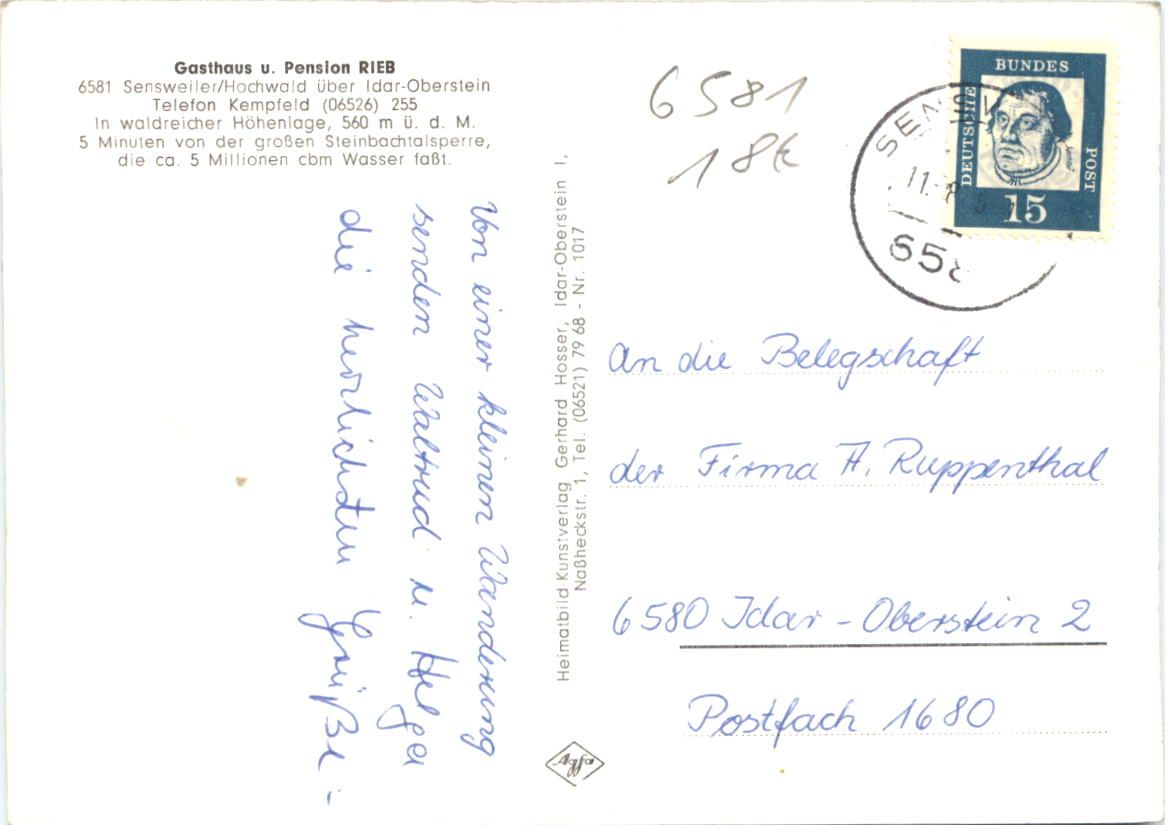 Gasthaus u. Pension RIEB
6581 Sensweiler/Hochwald über Idar-Oberstein
Telefon Kempfeld (06526) 255
In waldreicher Höhenlage, 560 m ü. d. M.
5 Minuten von der großen Steinbachtalsperre,
die ca. 5 Millionen cbm Wasser faßt.
Von einer kleinen Wanderung
senden Waltrud u. Helga
die herzlichsten Grüße.
Heimatbild-Kunstverlag Gerhard Hosser, Idar-Oberstein I,
Naßheckstr. 1, Tel. (06521) 79 68 - Nr. 1017
Agfa
6581
18€
SENSW
11. 8
658
DEUTSCHE
BUNDES
POST
15
An die Belegschaft
der Firma A. Ruppenthal
6580 Idar-Oberstein 2
Postfach 1680